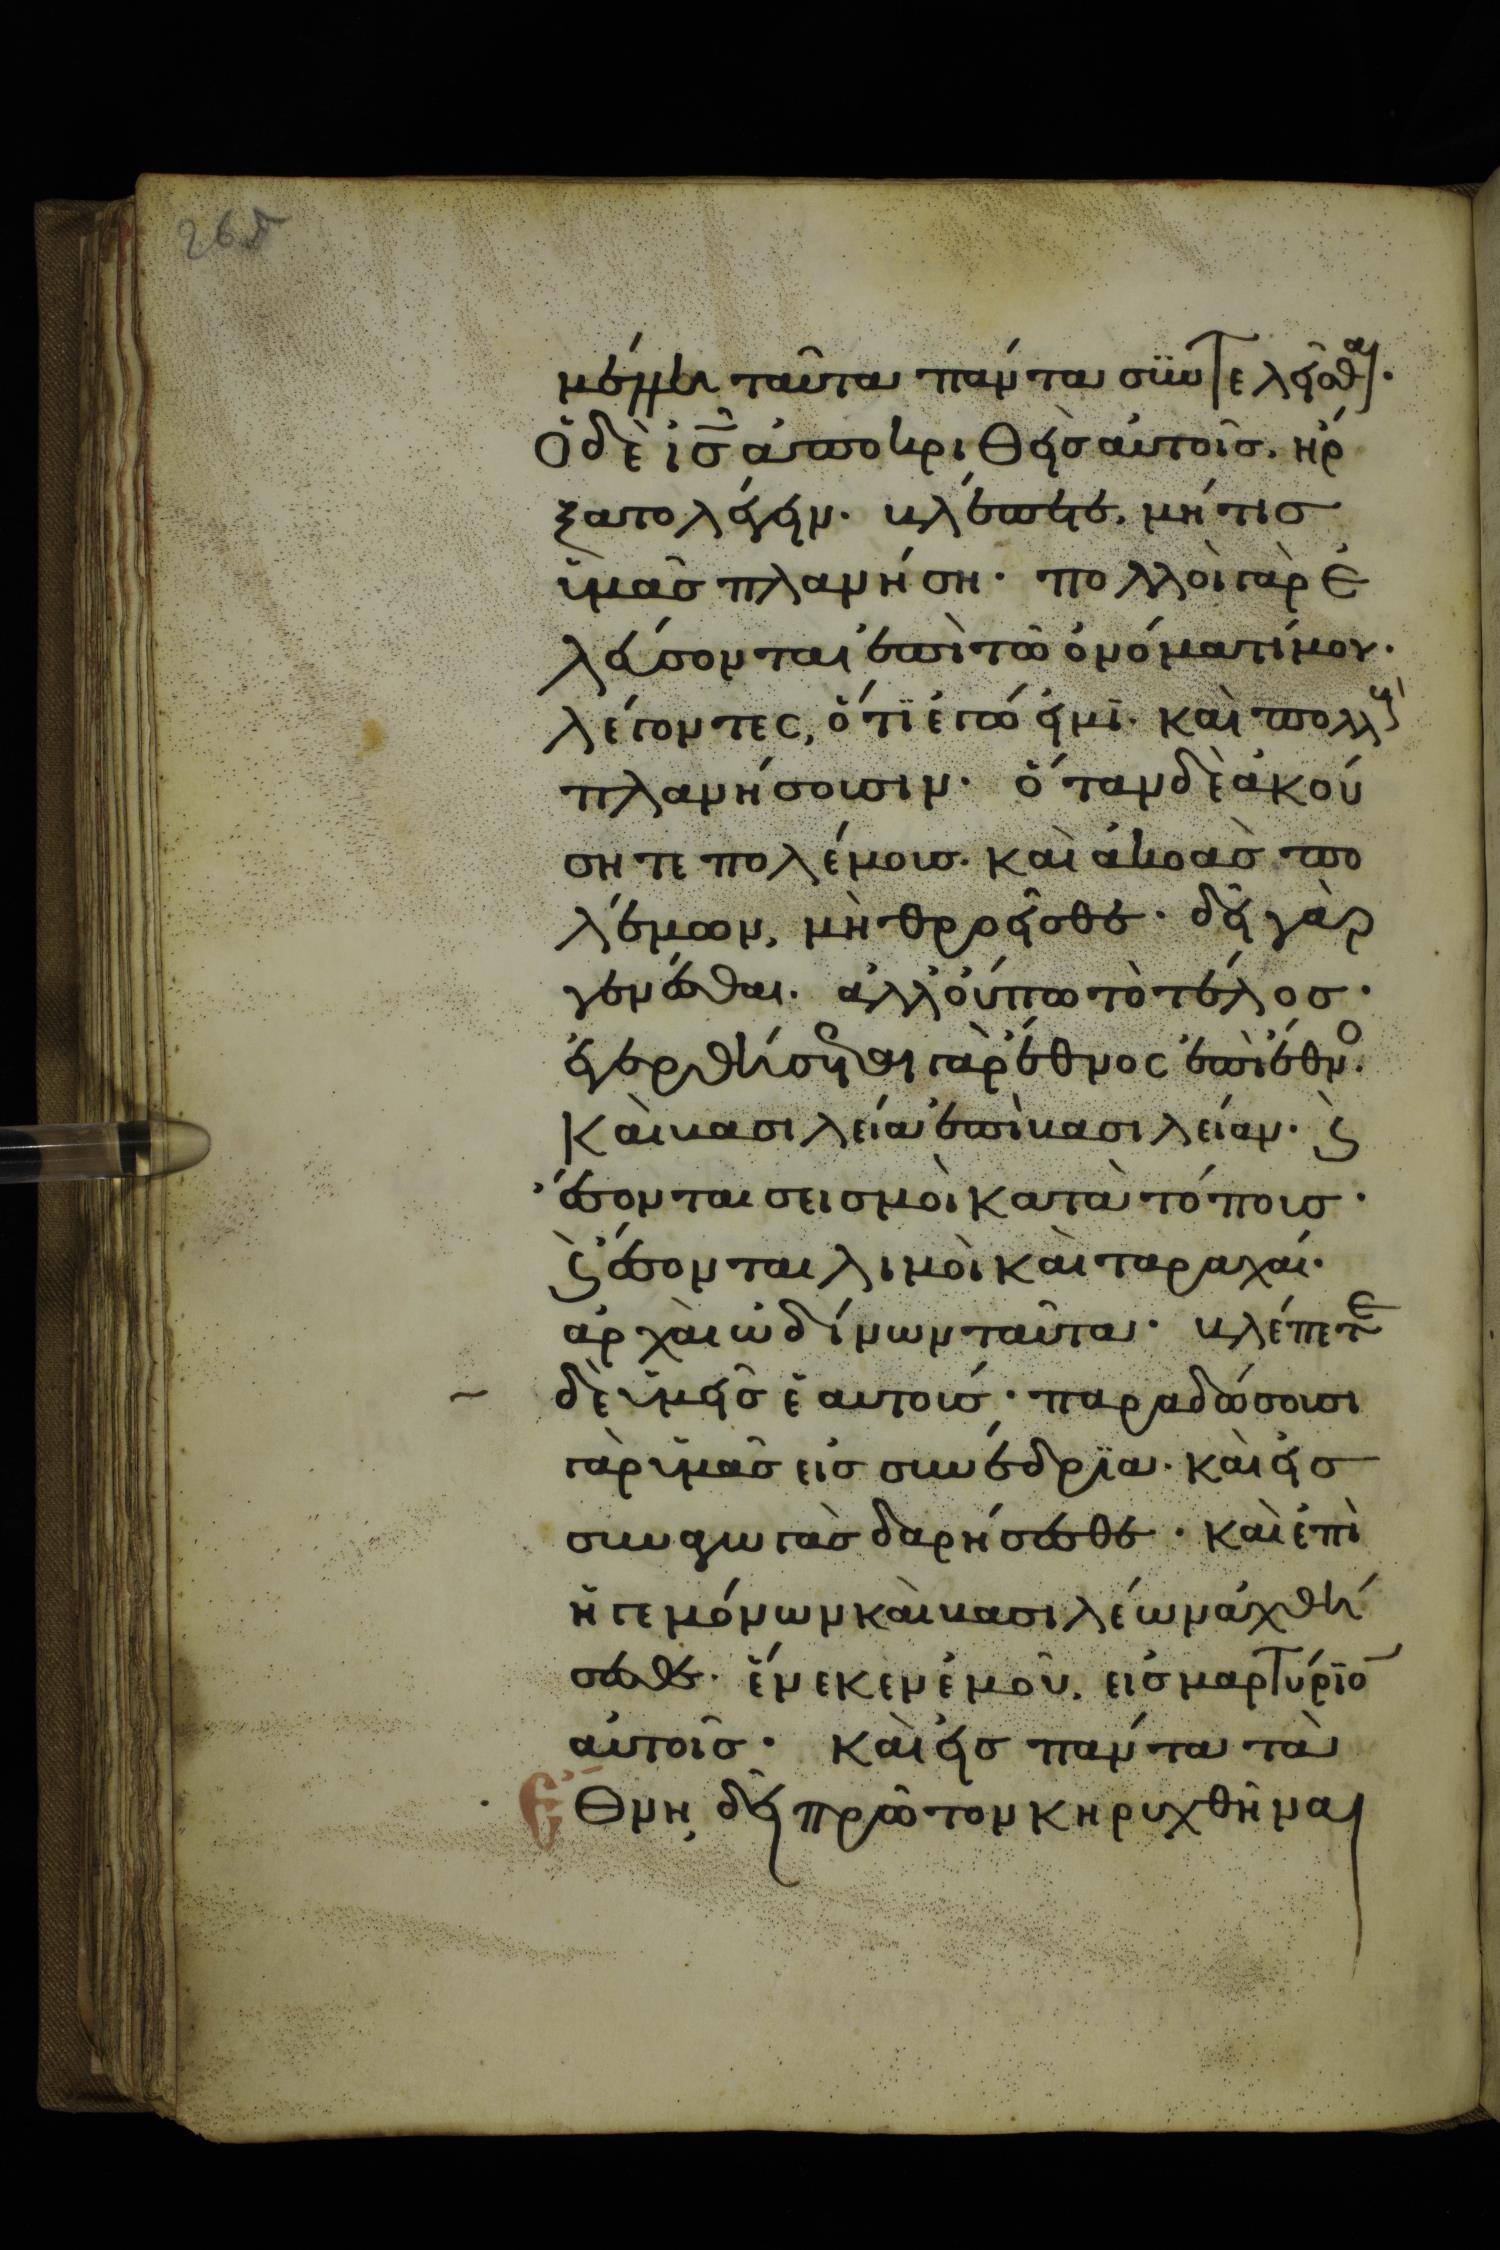 265
μέλλη ταῦτα πάντα συντελεῖσθαι·
Ὁ δὲ ις ἀποκριθεὶς αὐτοῖς, ἤρ
ξατο λέγειν· βλέπετε, μή τις
ὑμᾶς πλανήση· πολλοὶ γὰρ ἐ
λεύσονται ἐπὶ τῶ ὀνόματί μου·
λέγοντες, ὅτι ἐγώ εἰμι· καὶ πολλοὺς
πλανήσουσιν· ὅταν δὲ ἀκού
σητε πολέμους· καὶ ἀκοὰς πο
λέμων, μὴ θροεῖσθε· δεῖ γὰρ
γενέσθαι· ἀλλ' οὔπω τὸ τέλος·
ἐγερθήσεται γὰρ ἔθνος ἐπὶ ἔθνο·
Καὶ βασιλεία ἐπὶ βασιλείαν· ϗ
ἔσονται σεισμοὶ κατὰ τόπους·
ϗ ἔσονται λιμοὶ καὶ ταραχαί·
ἀρχαὶ ὠδίνων ταῦτα· βλέπετε
δὲ ὑμεῖς ἑαυτούς· παραδώσουσι
γὰρ ὑμᾶς εἰς συνέδρια· καὶ εἰς
συναγωγὰς δαρήσεσθε· καὶ ἐπὶ
ἡγεμόνων καὶ βασιλέων ἀχθή
σεσθε· ἕνεκεν ἐμοῦ, εἰς μαρτύριο
αὐτοῖς· καὶ εἰς πάντα τὰ
ἔθνη, δεῖ πρῶτον κηρυχθῆναι